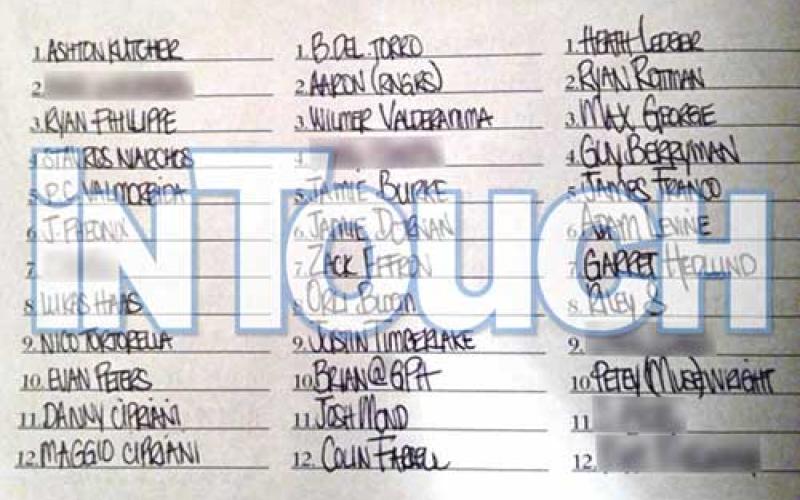 1. ASHTON KUTCHER
2.
3. RYAN PHILIPPE
4 STAVROS NIARCHOS
5. P.C. VALMORBIDA
6 J. PHEONIX
7.
8 LUKAS HAAS
9. NICO TORTORELLA
10. EVAN PETERS
11. DANNY CIPRIANI
12. MAGGIO CIPRIANI
1. B. DEL TORRO
2. AARON (RNGRS)
3. WILMER VALDERAMMA
4
5. JAMIE BURKE
6. JAMIE DORNAN
7. ZACK EFFRON
8 ORLI BLOOM
9. JUSTIN TIMBERLAKE
10. BRIAN @ GPH
11. JOSH
12. COLIN FARRELL
1. HEATH LEDGER
2. RYAN ROTTMAN
3. MAX GEORGE
4. GUY BERRYMAN
5. JAMES FRANCO
6. ADAM LEVINE
7. GARRET HEDLUND
8. RILEY S
9.
10. PETEY (MUSE) WRIGHT
11
12.
inTouch